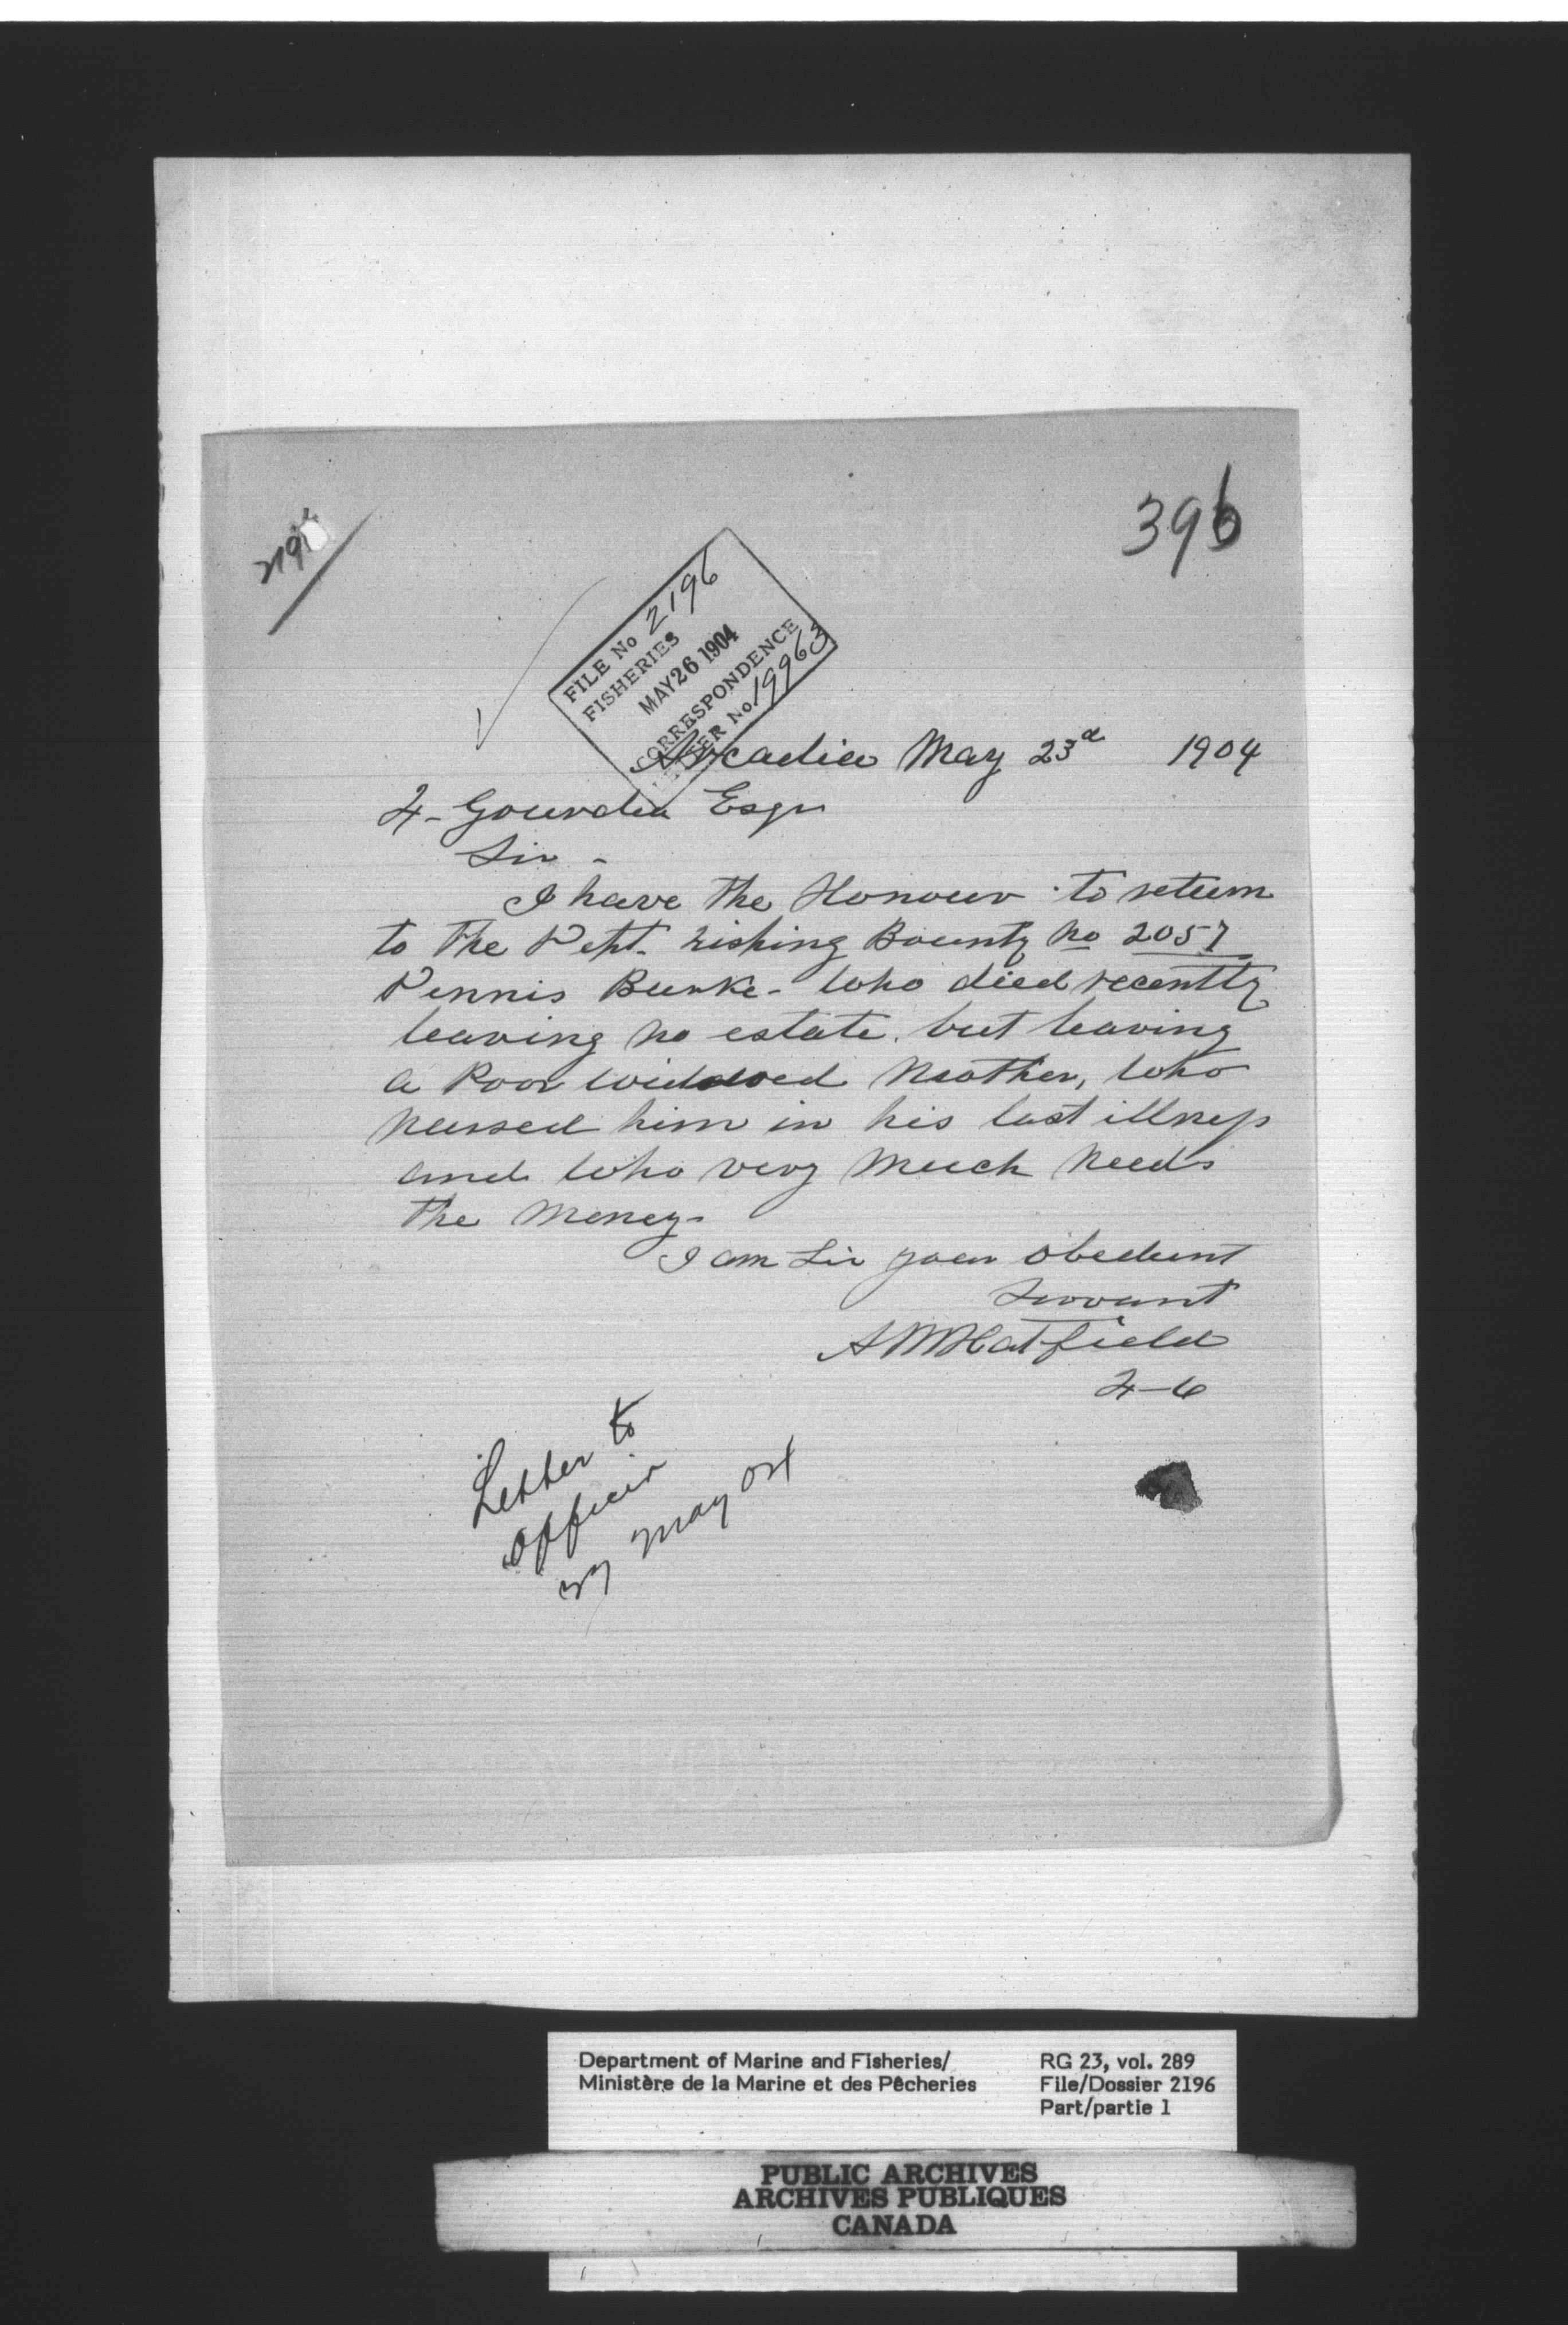 396
2196
FILE No 2196
FISHERIES
MAY 26 1904
CORRESPONDENCE
LETTER No. 19963
Arcadia May 23d 1904
F. Gourdeau Esqr
Sir -
I have the Honour to return
to the Dept. Fishing Bounty No 2057
Dennis Burke - who died recently
leaving no estate. but leaving
a Poor widdowed Mother, who
nursed him in his last illness
and who very much needs
the money.
I am Sir your obedient
Servant
A M Hatfield
F-O
Letter to
officer
27 May 04
Department of Marine and Fisheries/
Ministère de la Marine et des Pêcheries
RG 23, vol. 289
File/Dossier 2196
Part/partie 1
PUBLIC ARCHIVES
ARCHIVES PUBLIQUES
CANADA